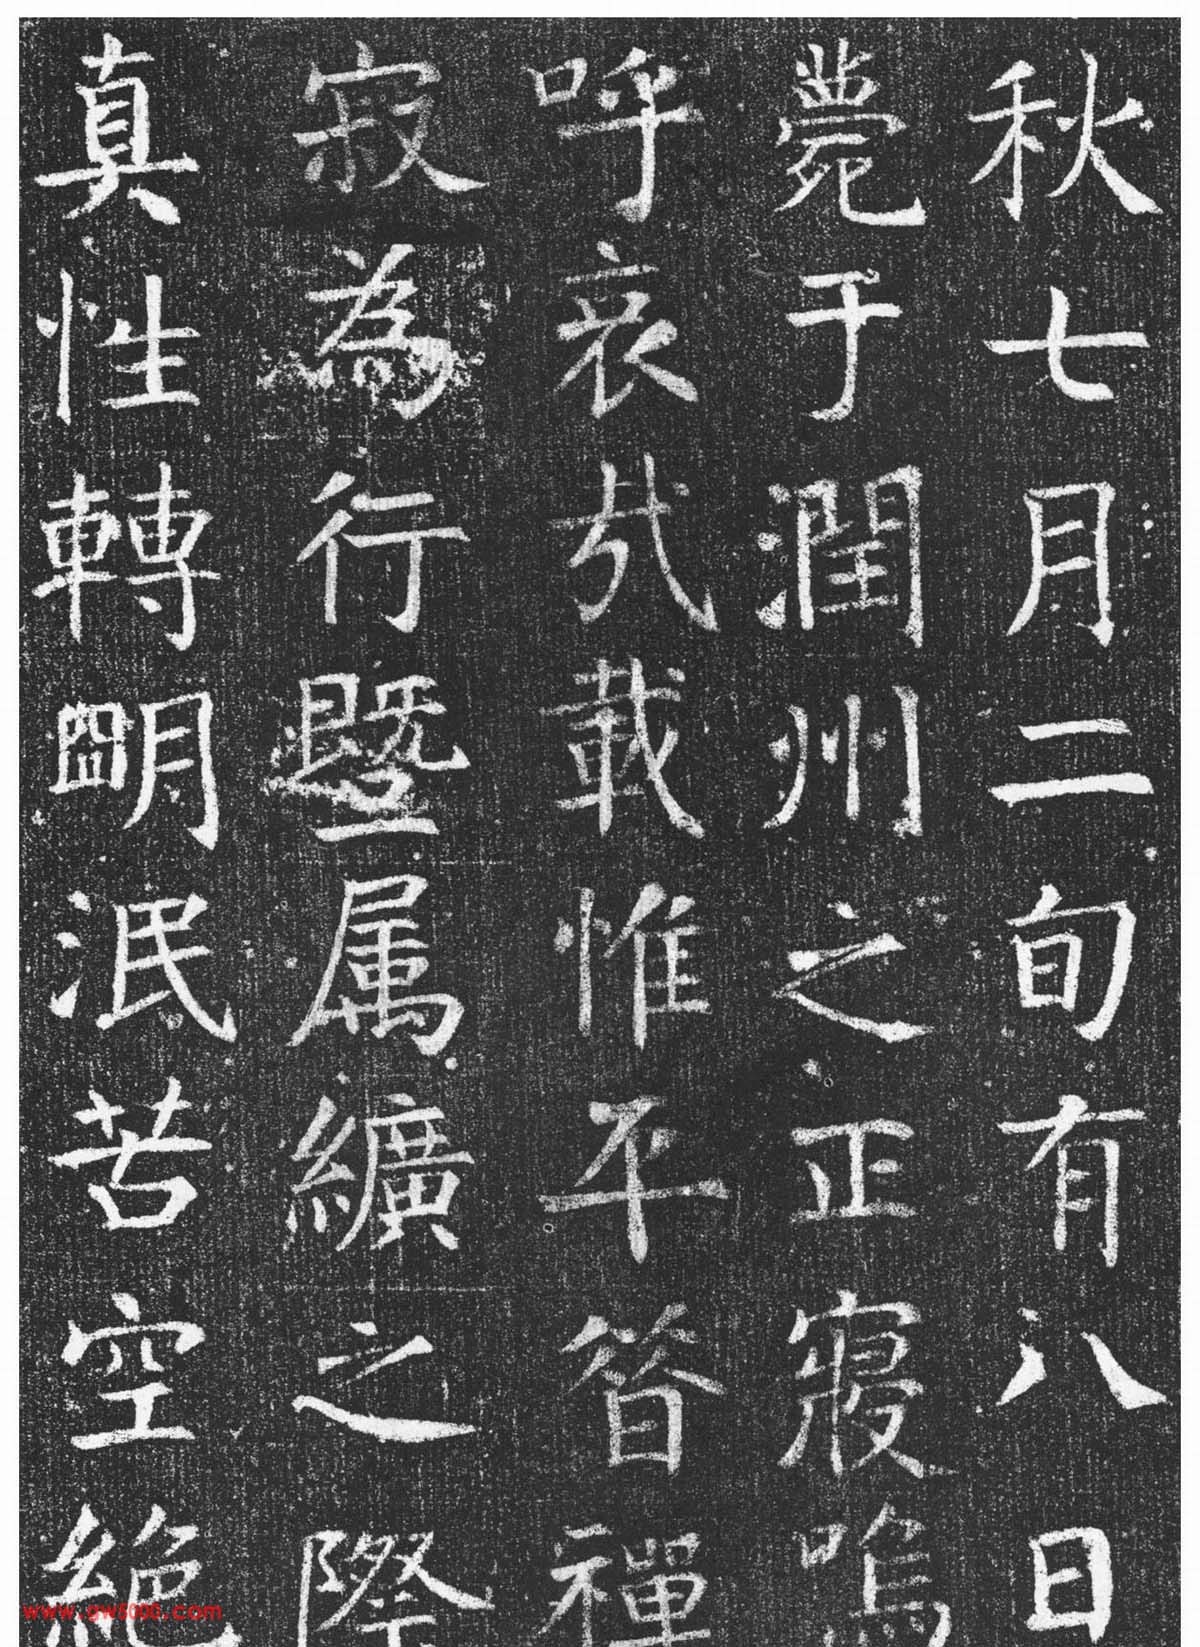 秋七月二旬有八日
薨于潤州之正寢嗚
呼哀哉載惟平昔禪
寂為行暨属纊之際
真性轉明泯苦空絕
www.gw5000.com